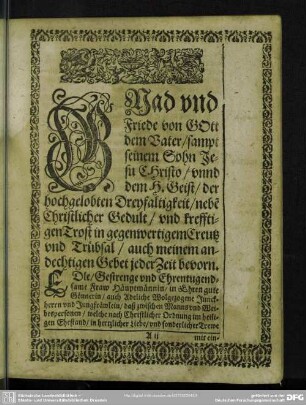 GNad vnd
Friede von GOtt
dem Vater/sampt
seinem Sohn Je-
su CHristo/vnnd
dem H. Geist/der
hochgelobten Dreyfaltigkeit/nebē
Christlicher Gedult/vnd kreffti-
gen Trost in gegenwertigem Creutz
vnd Trübsal/auch meinem an-
dechtigen Gebet jeder Zeit bevorn.
EDle/Gestrenge vnd Ehrentugend-
same Fraw Häuptmännin/in Ehren gute
Gönnerin/auch Adeliche Wolgezogene Junck-
herrn vnd Jungfräwlein/daß zwischen Mannes vnd Wei-
bespersonen/welche nach Christlicher Ordnung im heili-
gen Ehestand/in hertzlicher Liebe/vnd sonderlicher Trewe
A ij
mit ein-